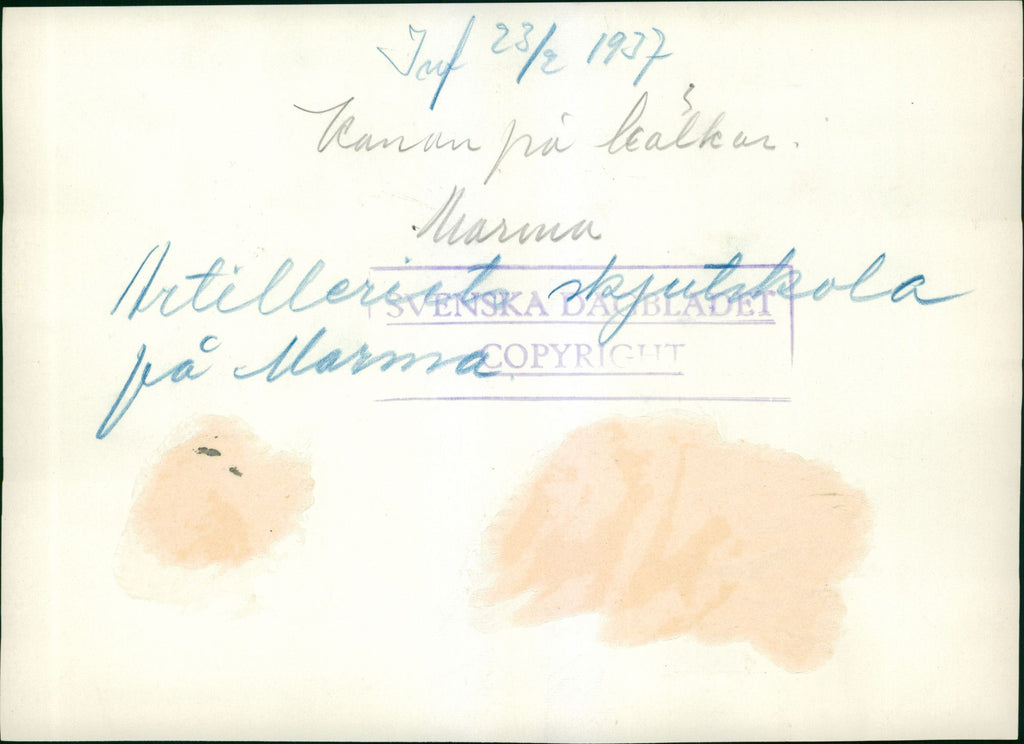 Inf 23/2 1937
Kanon på kälkar.
Marma
Artilleriets skjutskola
SVENSKA DAGBLADET
på Marma
COPYRIGHT